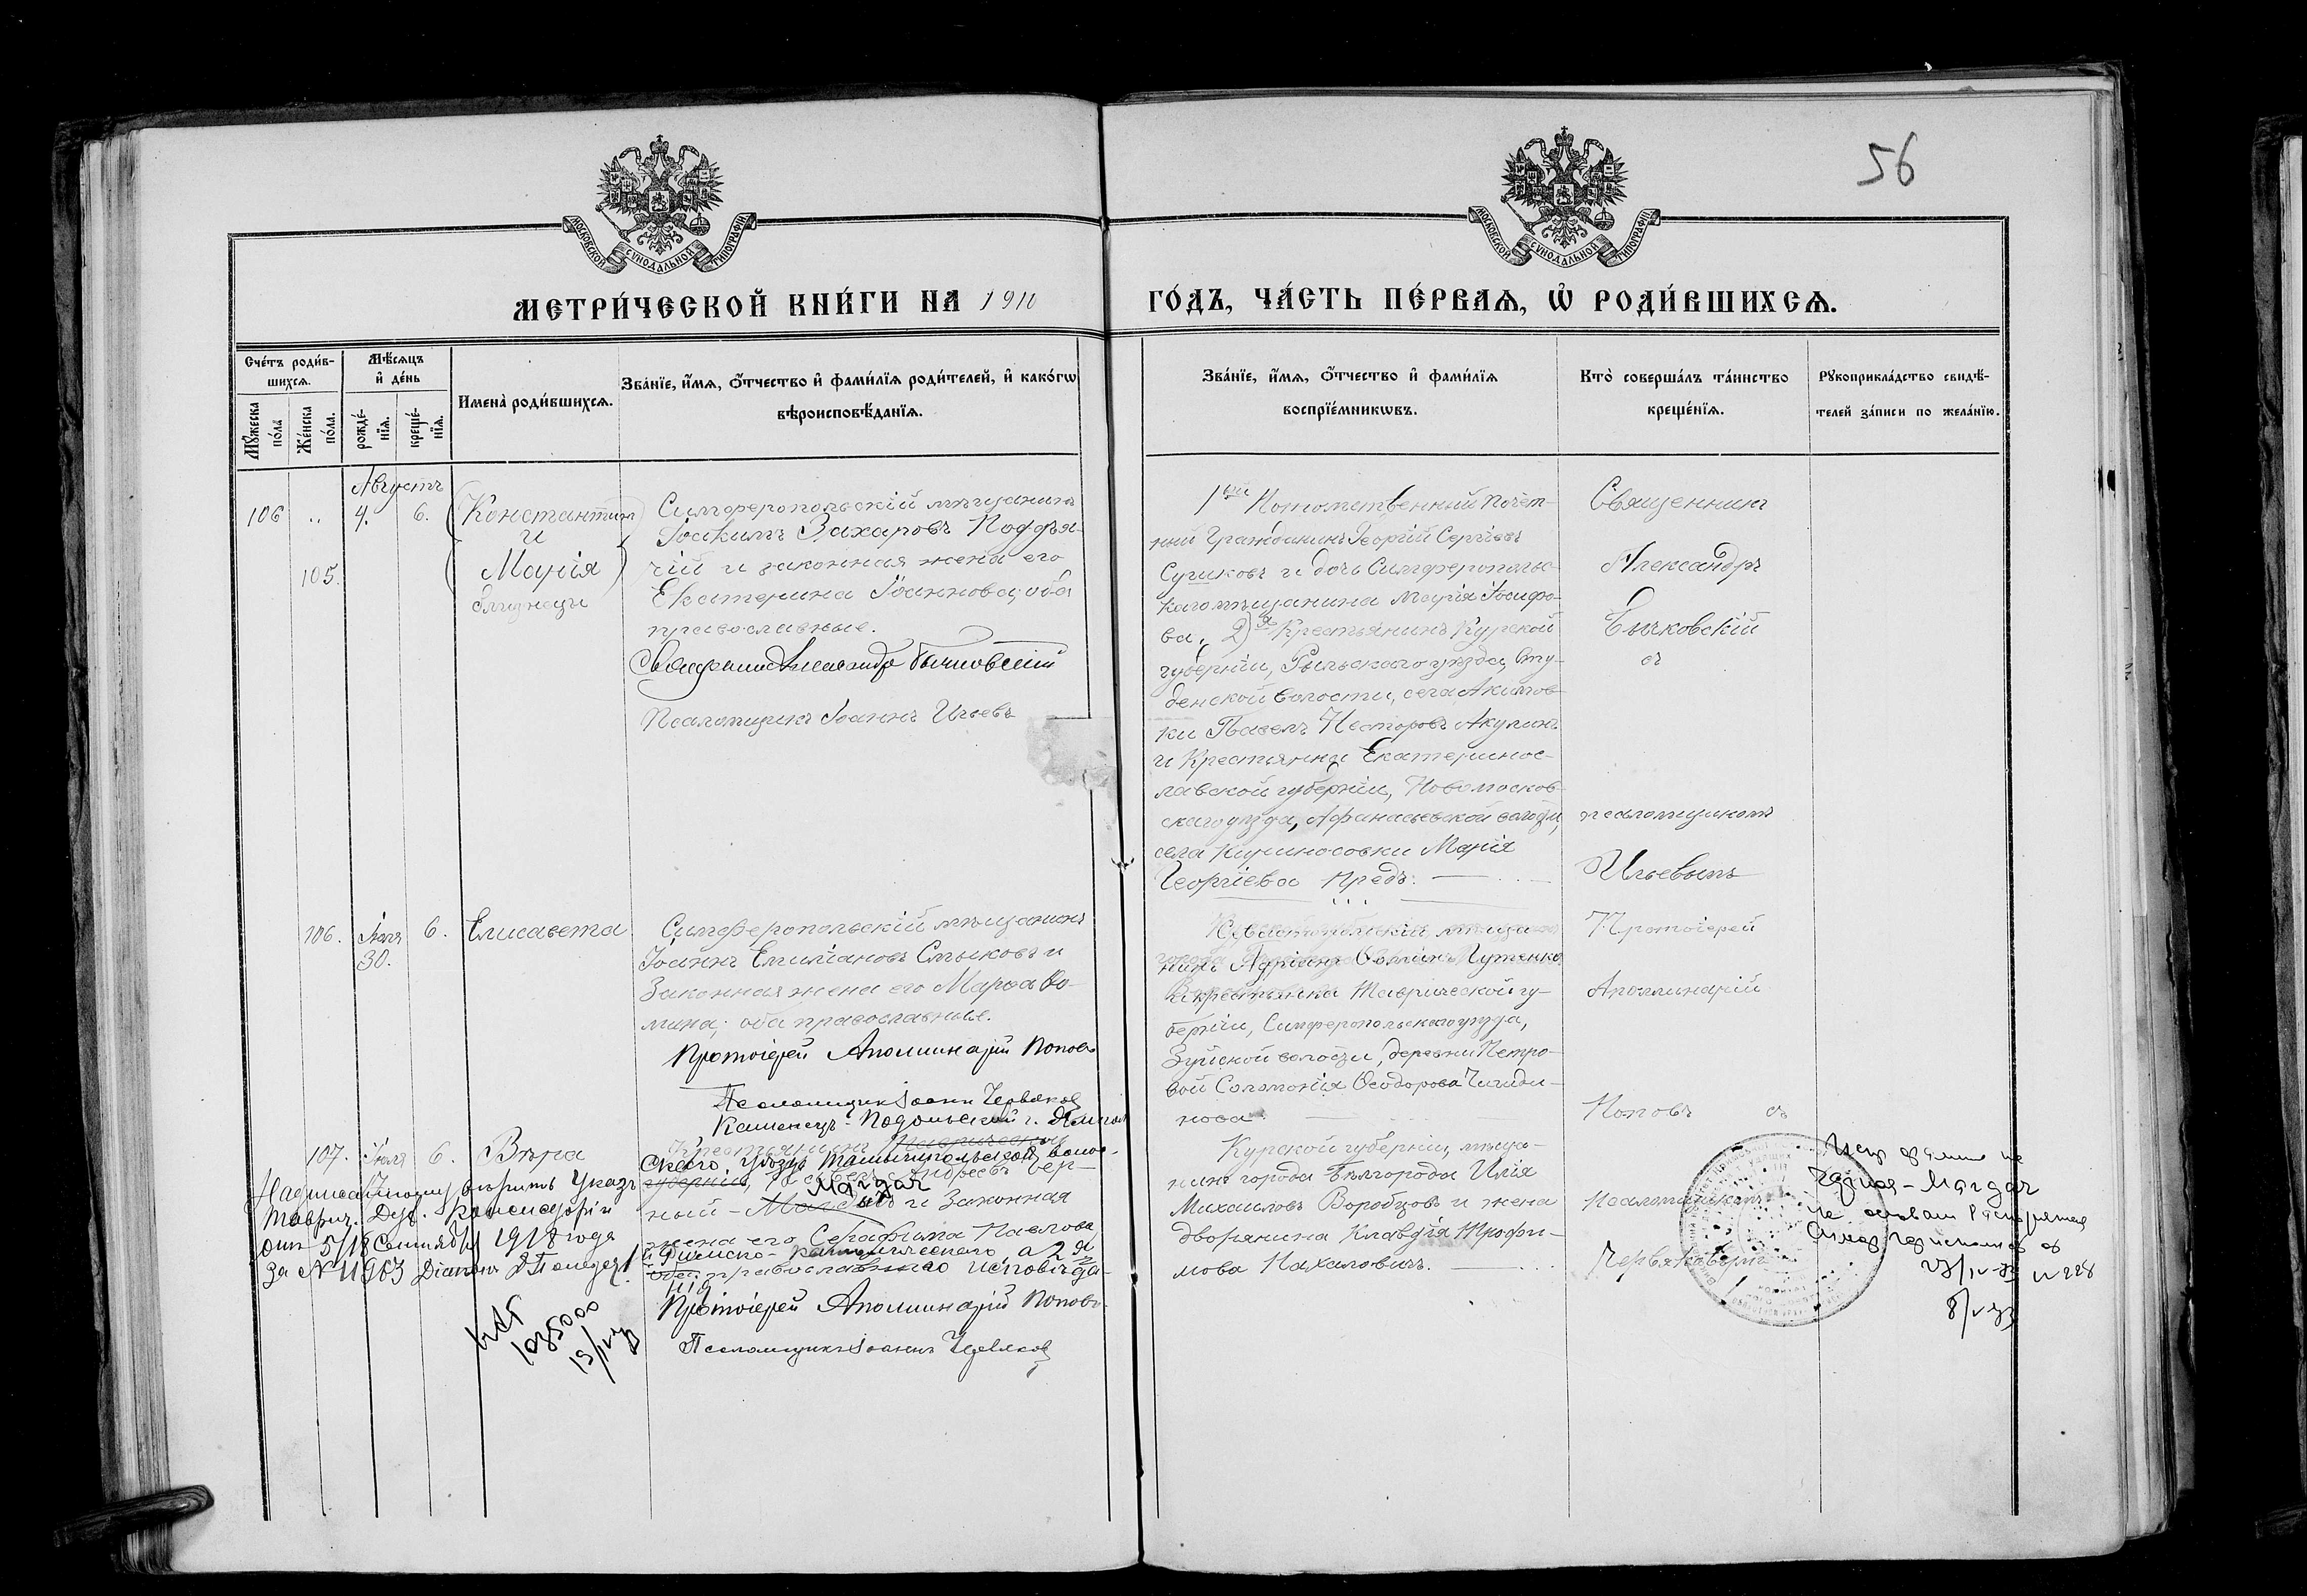 56
МОСКОВСКОЙ СѴНОДАЛЬНОЙ ТИПОГРАФІИ
МОСКОВСКОЙ СѴНОДАЛЬНОЙ ТИПОГРАФІИ
МЕТРИ́ЧЕСКОЙ КНИ́ГИ НА 1910
ГО́ДЪ, ЧА́СТЬ ПЕ́РВАѦ, Ѡ҆ РОДИ́ВШИХСѦ.
Сче́тъ роди́в-
шихсѧ.
Мꙋ́жеска по́ла
Же́нска по́ла.
Мѣ́сѧцъ
и҆ де́нь
рожде́-
нїѧ.
креще́-
нїѧ.
Имена̀ роди́вшихсѧ.
Зва́нїе, и҆́мѧ, ѻ҆́тчество и҆ фами́лїѧ роди́телей, и҆ како́гѡ
вѣроисповѣ́данїѧ.
Зва́нїе, и҆́мѧ, ѻ҆́тчество и҆ фами́лїѧ
воспрїе́мникѡвъ.
Кто̀ соверша́лъ та́инство
креще́нїѧ.
Рꙋкоприкла́дство свидѣ́-
телей за́писи по жела́нїю.
Августъ
106 „ 4. 6. Константинъ
и
105. Марія
близнецы
Симферопольскій мѣщанинъ
Іоакимъ Захаровъ Поддья-
чій и законная жена его
Екатерина Іоаннова; оба
православные.
Священникъ Александръ Бычковскій
Псаломщикъ Іоаннъ Ильевъ
1вый Потомственный почёт-
ный гражданинъ Георгій Сергіевъ
Сушковъ и дочь Симферопольс-
каго мѣщанина Марія Іосифо-
ва, 2) Крестьянинъ Курской
губерніи, Рыльскаго уѣзда, Сту-
денской волости, села Акимов-
ки Павелъ Несторовъ Акулинъ
и Крестьянка Екатеринос-
лавской губерніи, Новомосков-
скаго уѣзда, Афанасьевской волости,
села Кириносовки Марія
Георгіева Предъ.
Священникъ
Александръ
Бычковскій
съ
псаломщикомъ
Ильевымъ
106. Іюля 30. 6. Елисавета
Симферопольскій мѣщанинъ
Іоаннъ Емиліановъ Смыковъ и
Законная жена его Марѳа Ѳо-
мина; оба православные.
Протоіерей Аполлинарій Поповъ
Псаломщикъ Іоаннъ Червяковъ
Севастопольскій мѣща-
нинъ Адріанъ Луценко
и крестьянка Таврической гу-
берніи, Симферопольскаго уѣзда,
Зуйской волости, деревни Петро-
вой Соломонія Ѳеодорова Чигиди-
нова.
Протоіерей
Аполлинарій
Поповъ съ
107. Іюля 6. Вѣра
Каменецъ-Подольской г. Ямполь-
скаго, уѣзда волос-
Крестьянинъ Таврической
губерніи, Андреевъ Вер-
ный - Маргач и Законная
жена его Серафима Павлова
Римско-католическаго, а 2я
оба православнаго исповѣда-
нія
Протоіерей Аполлинарій Поповъ
Псаломщикъ Іоаннъ Червяковъ
Курской губерніи, мѣща-
нинъ города Бѣлгорода Илія
Михаиловъ Воробцовъ и жена
дворянина Клавдія Трофи-
мова Пахаловичъ.
Псаломщикомъ
Червяковымъ
вѣрить Указъ
Таврич. Дух. Консисторіи
отъ 5/18 Сентября 1918 года
за № 11963 Діаконъ
Маргач
на основан
23/IV-33 N 228
8/V-33